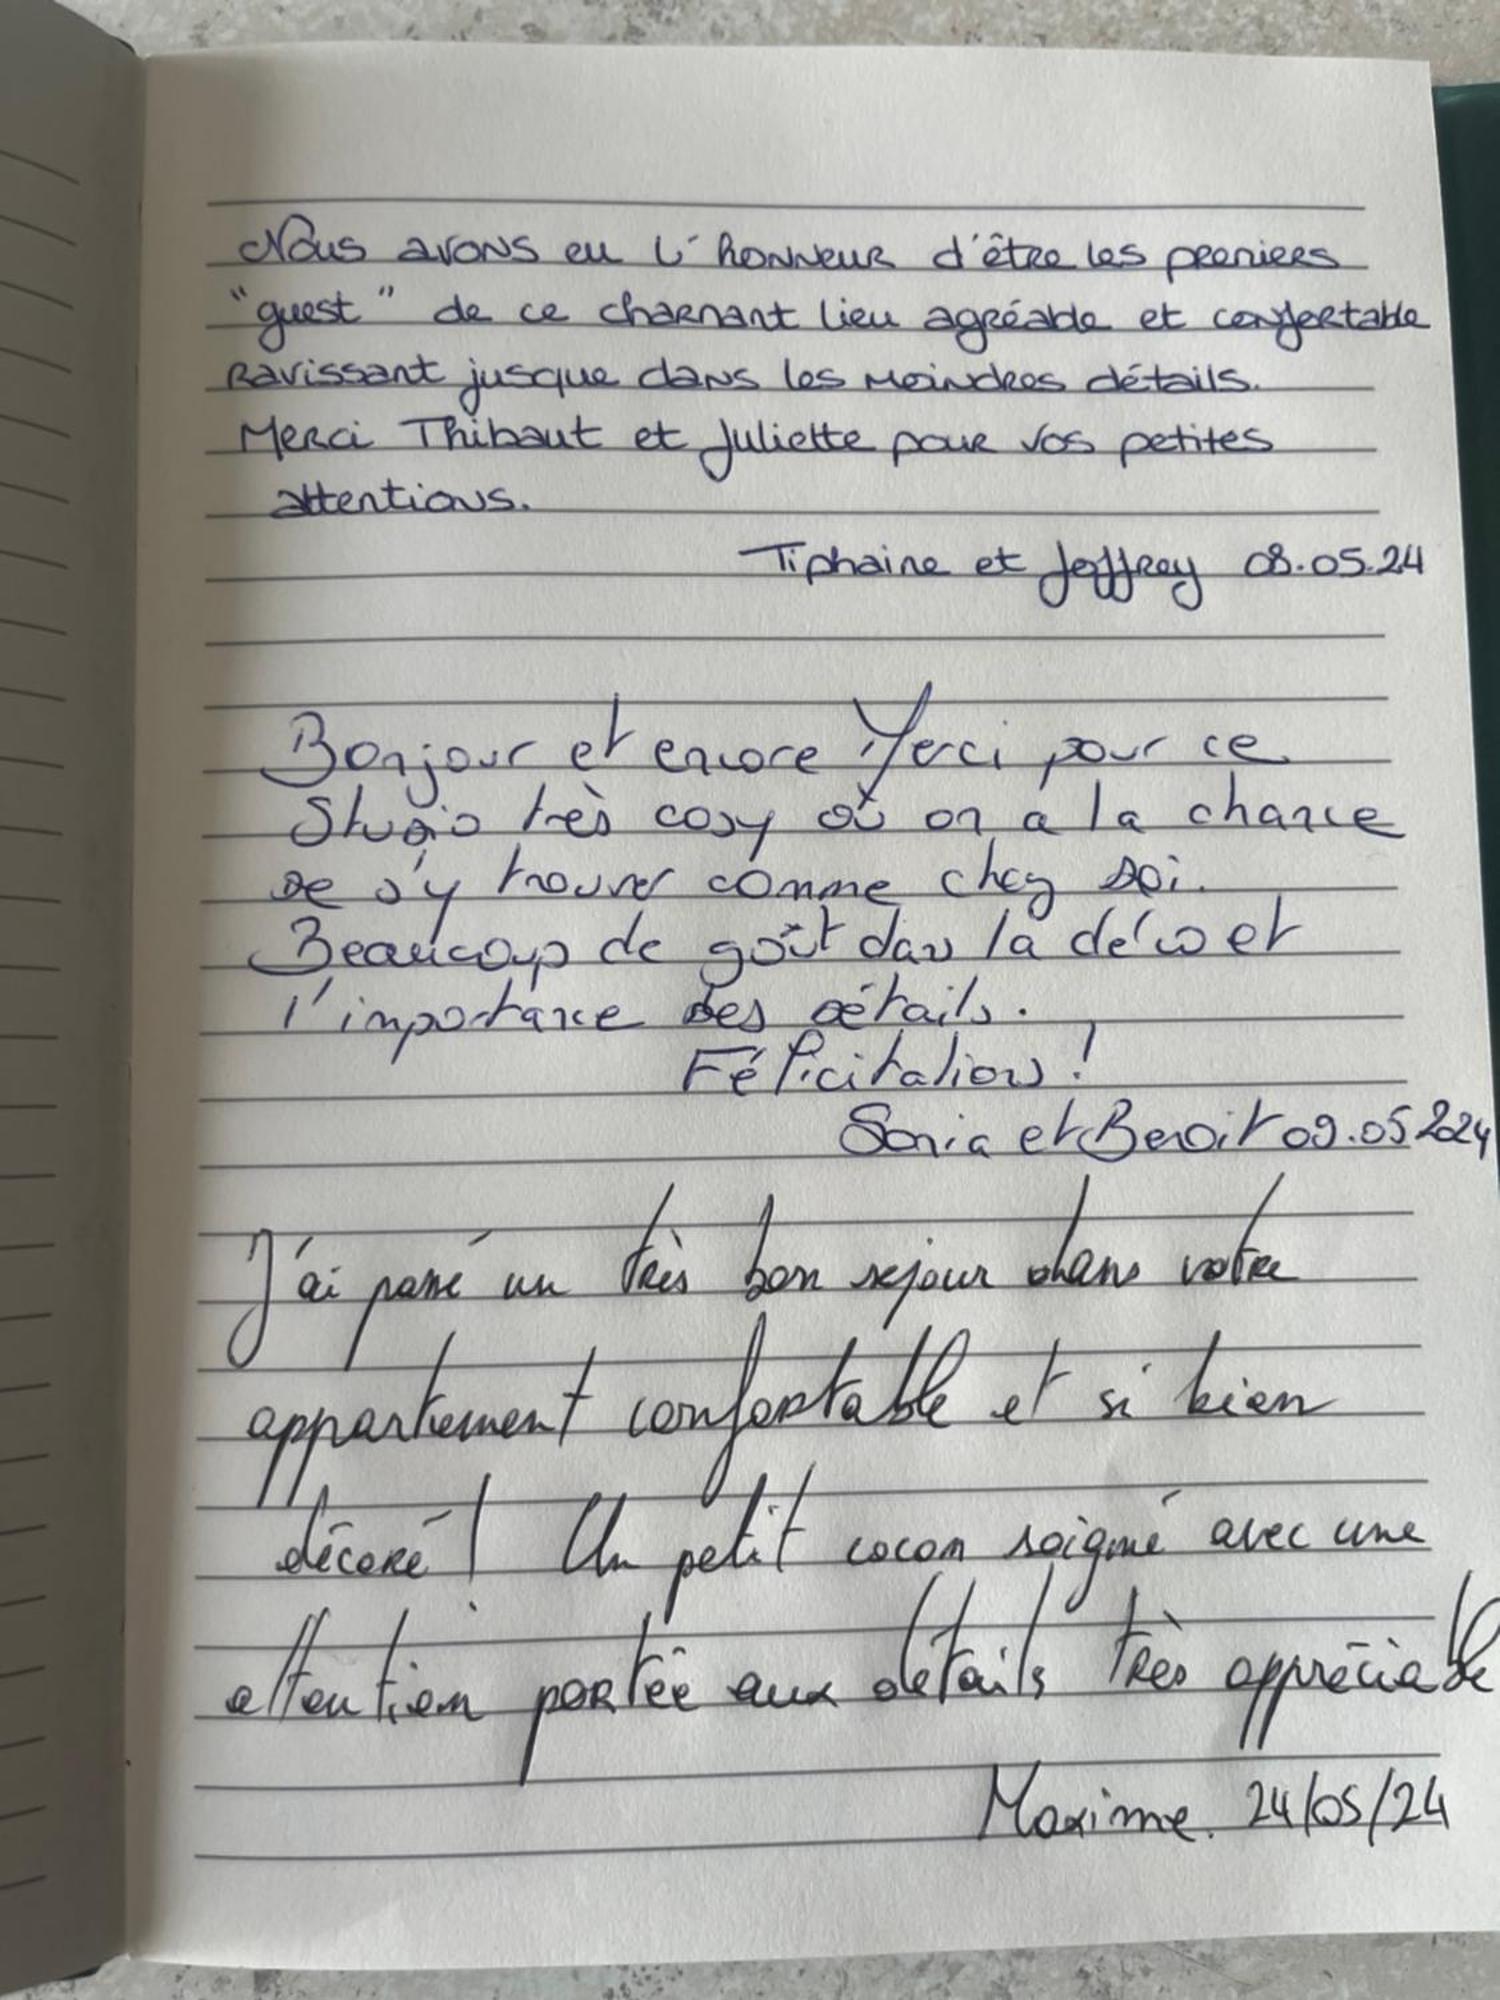 Nous avons eu l'honneur d'être les premiers
"guest" de ce charmant lieu agréable et confortable
Ravissant jusque dans les moindres détails.
Merci Thibaut et Juliette pour vos petites
attentions.
Tiphaine et Joffrey 08.05.24
Bonjour et encore Merci pour ce
Studio très cosy où on a la chance
de s'y trouver comme chez soi.
Beaucoup de goût dans la déco et
l'importance des détails.
Félicitations !
Sonia et Benoit 09.05 2024
J'ai passé un très bon sejour dans votre
appartement confortable et si bien
décoré ! Un petit cocon soigné avec une
attention portée aux détails très appréciable
Maxime. 24/05/24